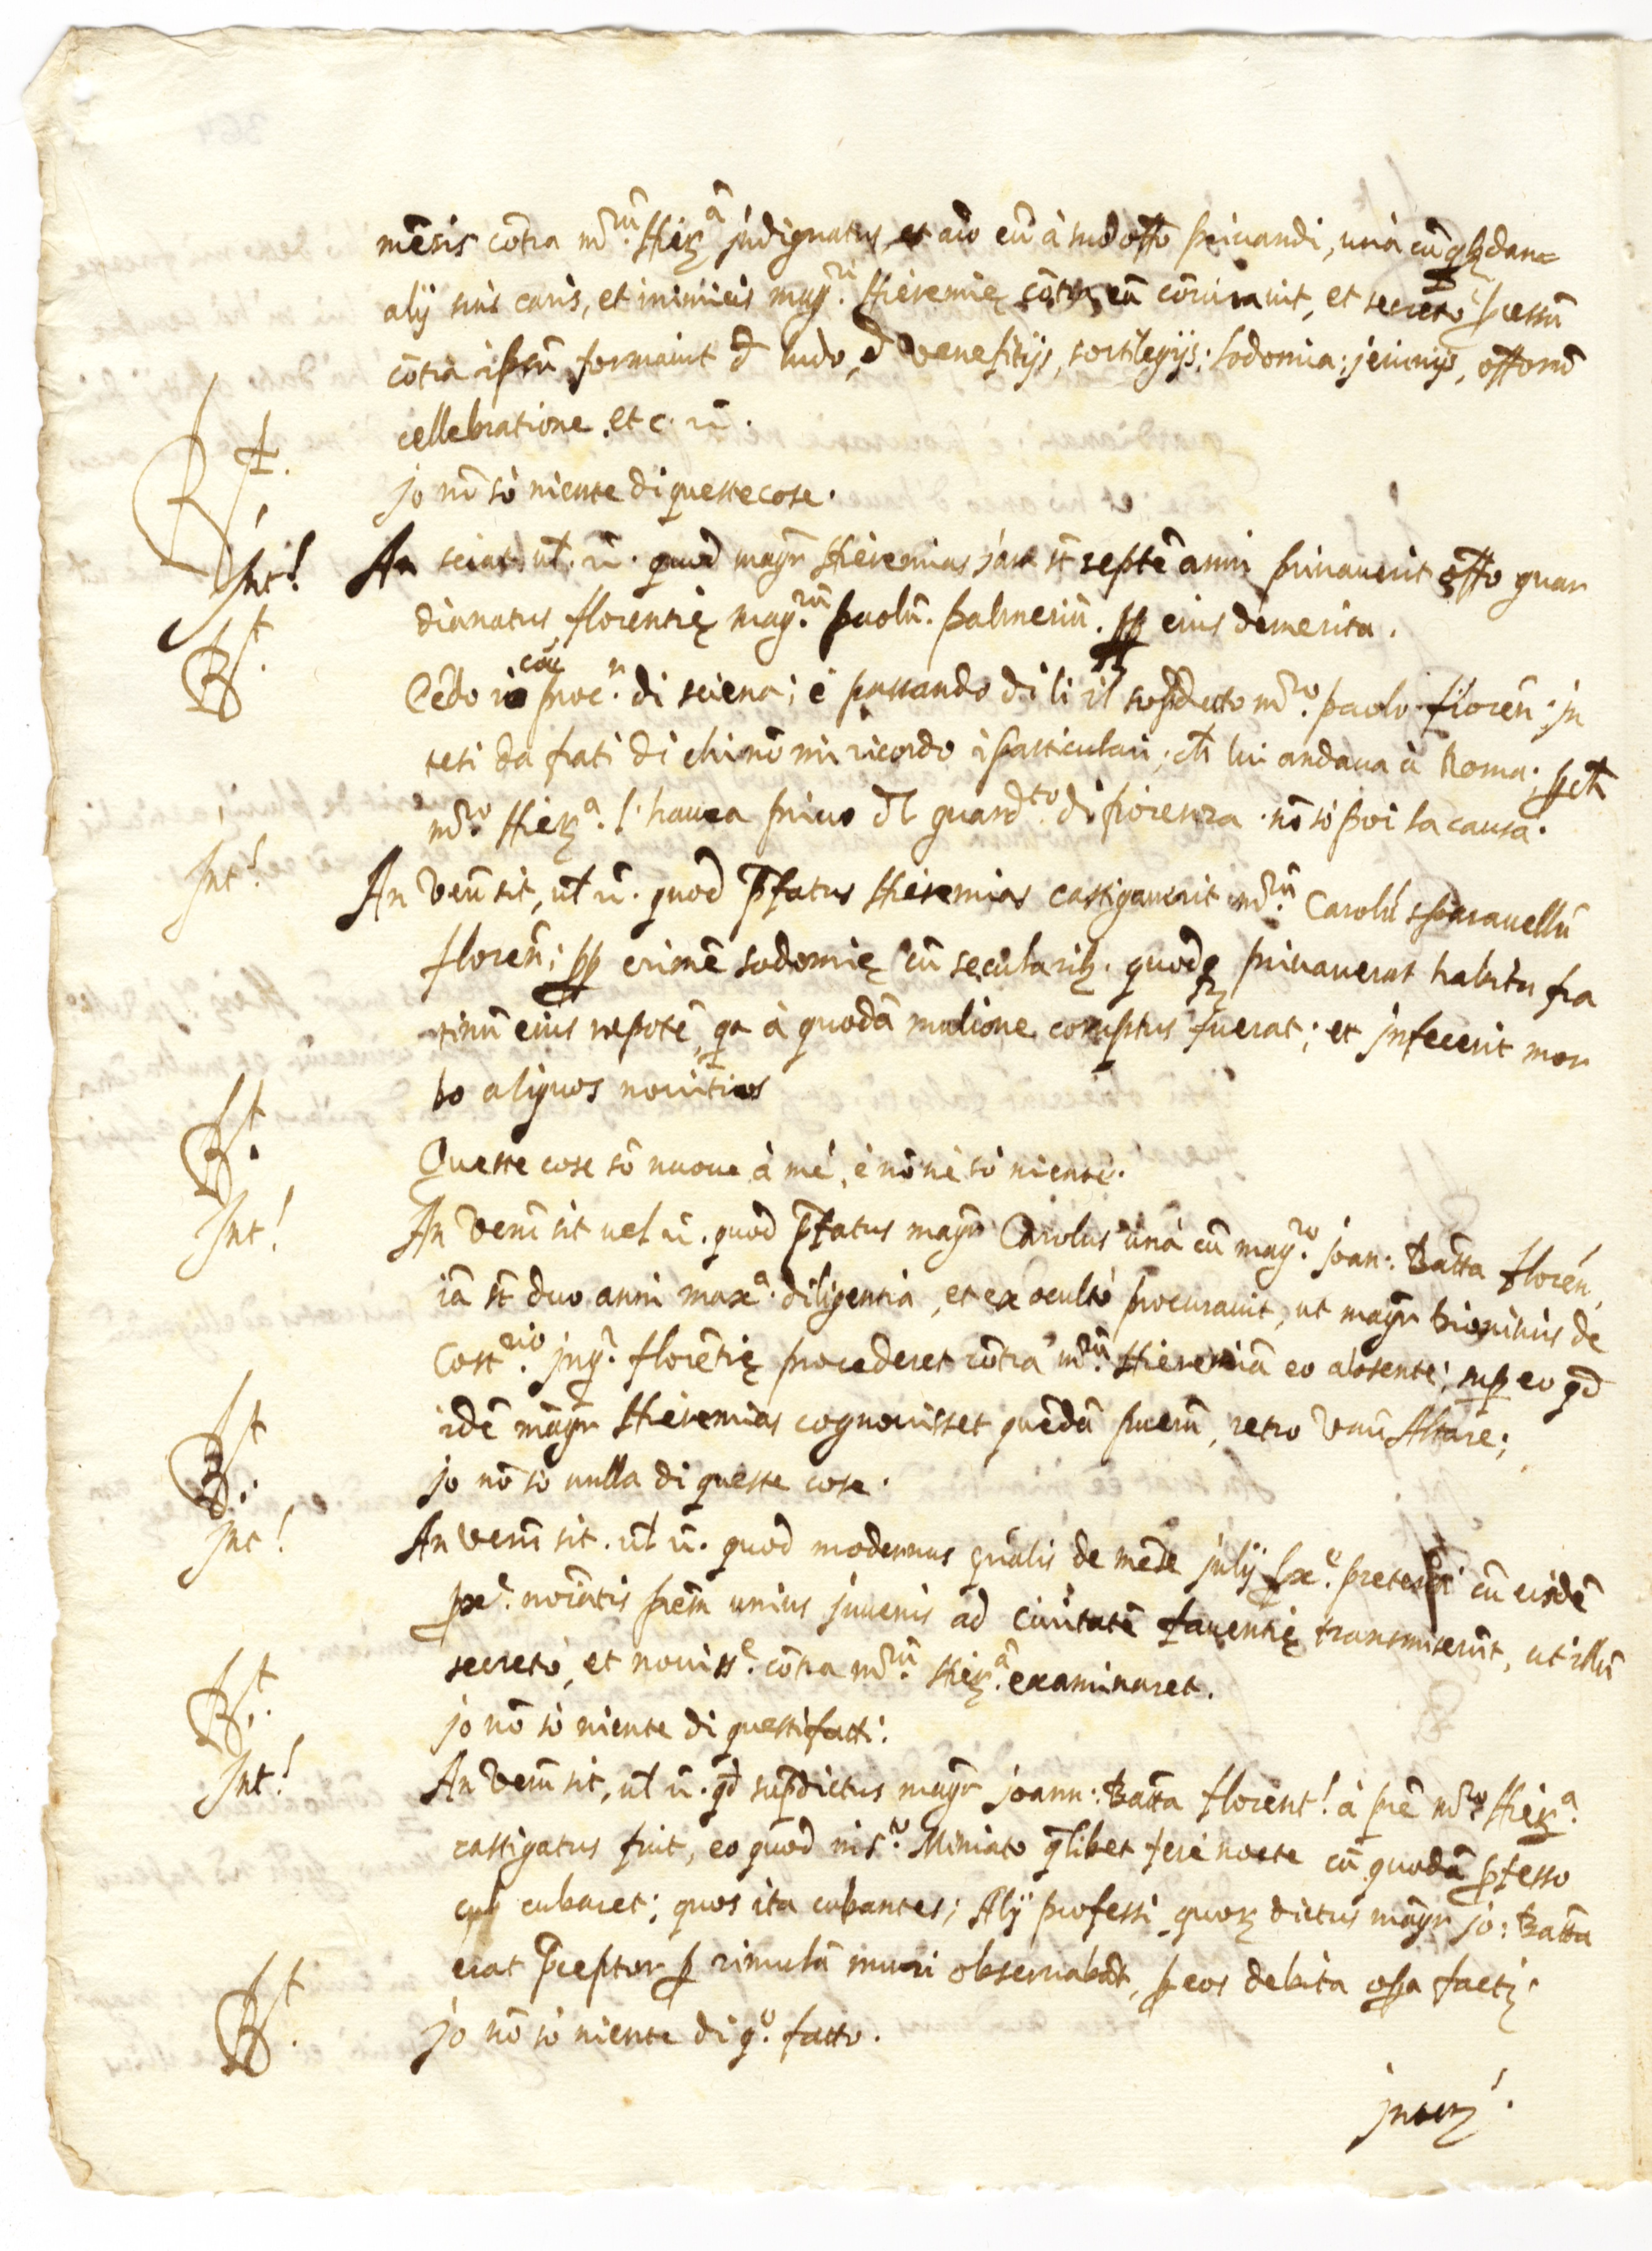 mēsis cōtra mr̃ũ. Hierᵃ̃ jndignatus, et aīo eũ à suo offo priuandi, unà cũ qbdam
alij suis caris, et inimicis magri. Hieremię cōtra eũ cōiurauit, et secreto ꝓcessũ
cōtra ipsũ formauit đ ludo, đ Venefitijs, sortilegijs; sodomia; jeiunijs, offorũ
cellebratione et c. rñ.
Rt. jo nō sò niente di queste cose.
Int! An sciat, ut̃. rñ. quod magr Hieremias jam st̃ septē anni priuauerit offo guar
dianatus florentię magrũ. paolũ. palmeriũ. ꝓp eius demerita.
Rt. Cc̄do io proc.r di siena; è passando di li il sopdetto mro. paolo fiorēn. jn
tesi da frati di chi nō mi ricordo ī particulari, ch̃ lui andaua à Roma; ꝑch̃
mro. Hierᵃ. l'hauea priuo đl guardto. di fiorenza. nō sò poi la causa.
Int! An Verũ sit, ut̃ rñ. quod p̄fatus Hieremias castigauerit mrũ. Carolũ sparauellũ
florēn; ꝓp crimē sodomię cũ secularib. quodq priuauerat habitu fra
rinũ eius nepotē, qa à quodā mulione coruptus fuerat; et jnfecerit mor
bo aliquos nouitios
Rt. Queste cose sō nuoue à mé, è nō nè sò niente.
Int! An Verũ sit uel rñ. quod p̄fatus magr Carolus unà cũ magro. joan: Batta florēn.
iā st̃ duo anni maxᵃ. diligentia, et ex ocultò procurauit, ut magr Dionisius de
Costrio. jnqr. florētię procederet cōtra mrũ. Hieremiā eo absente; sup eo qđ
idē magr Hieremias cognouisset quēdā puerũ, retro Vnũ Altare;
Rt. jo nō sò nulla di queste cose.
Int! An Verũ sit. ut̃ rñ. quod modernus gn̄alis de mēse julij ꝓxe. preteriti cũ eisdē
ꝓxe. noīatis frēm unius juuenis ad Ciuitatē fauentię transmiserũt, ut illũ
secretò, et nouisse. cōtra mrũ. Hierᵃ̃. examinaret.
Rt. jo nō sò niente di questi fatti.
Int! An Verũ sit, ut̃ rñ. qđ sup̄dictus magr joann: Batta florent! à p̄rē mro Hierᵃ.
castigatus fuit, eo quod in sto. Miniato qlibet ferè nocte cũ quodā ꝓfesso
cubaret; quos ita cubantes; Alij professi quorũ dictus magr jo: Batta
erat p̄ceptor ꝑ rimulā muri obseruabāt, ꝑ eos debita opa factis.
Rt. jo nō sò niente di qo. fatto.